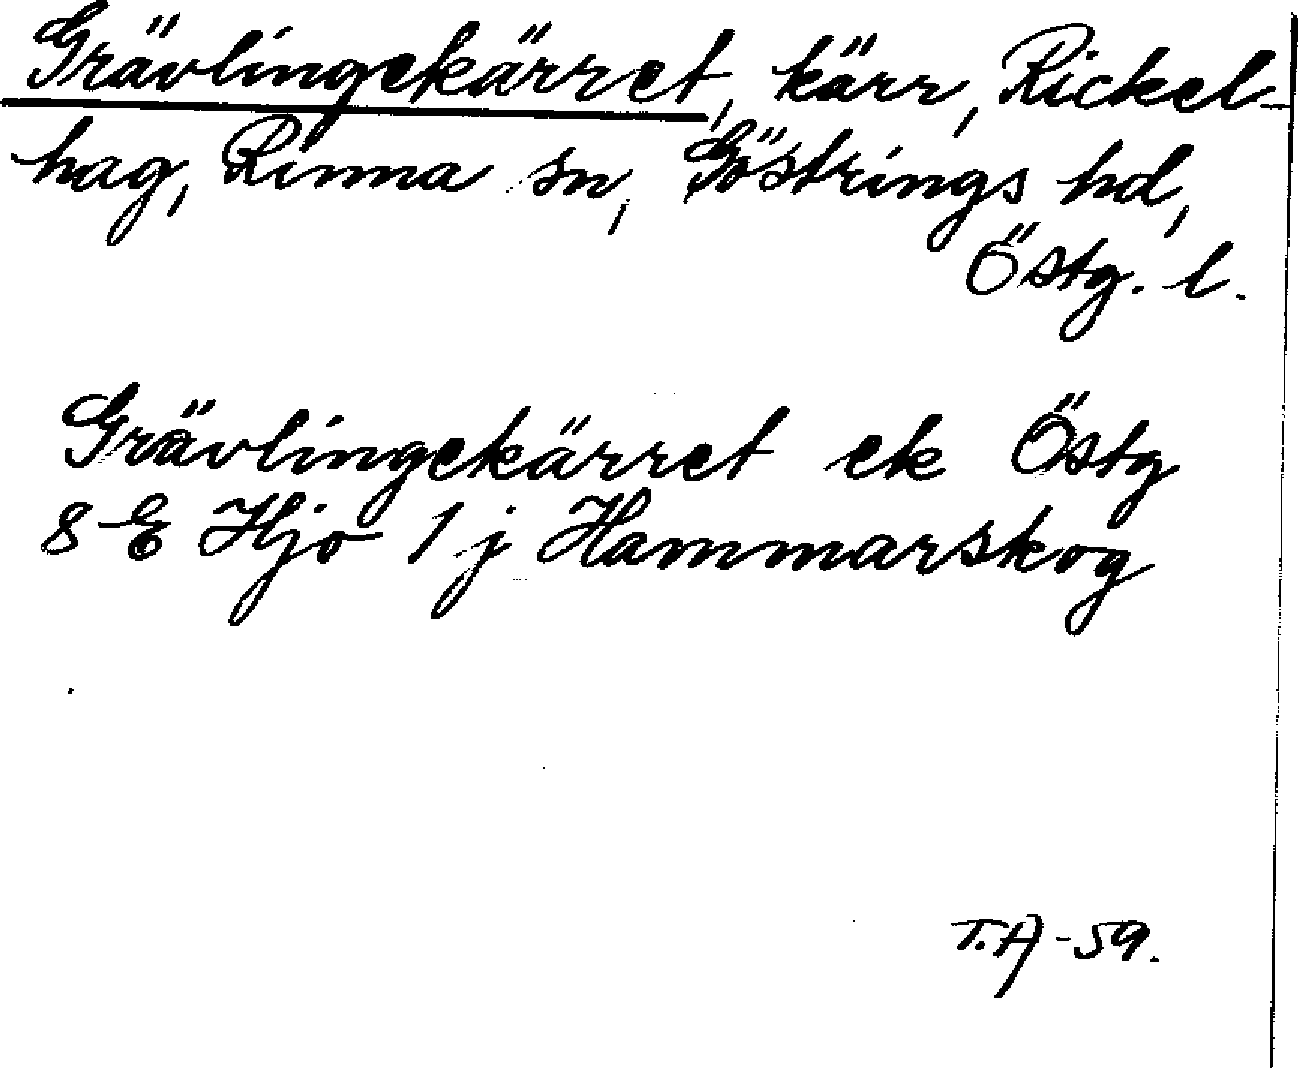 Grävlingekärret, kärr, Rickel-
hag, Rinna sn, Göstrings hd,
Östg. l.
Grävlingekärret ek Östg
8 E Hjo 1 j Hammarskog
T.A-59.